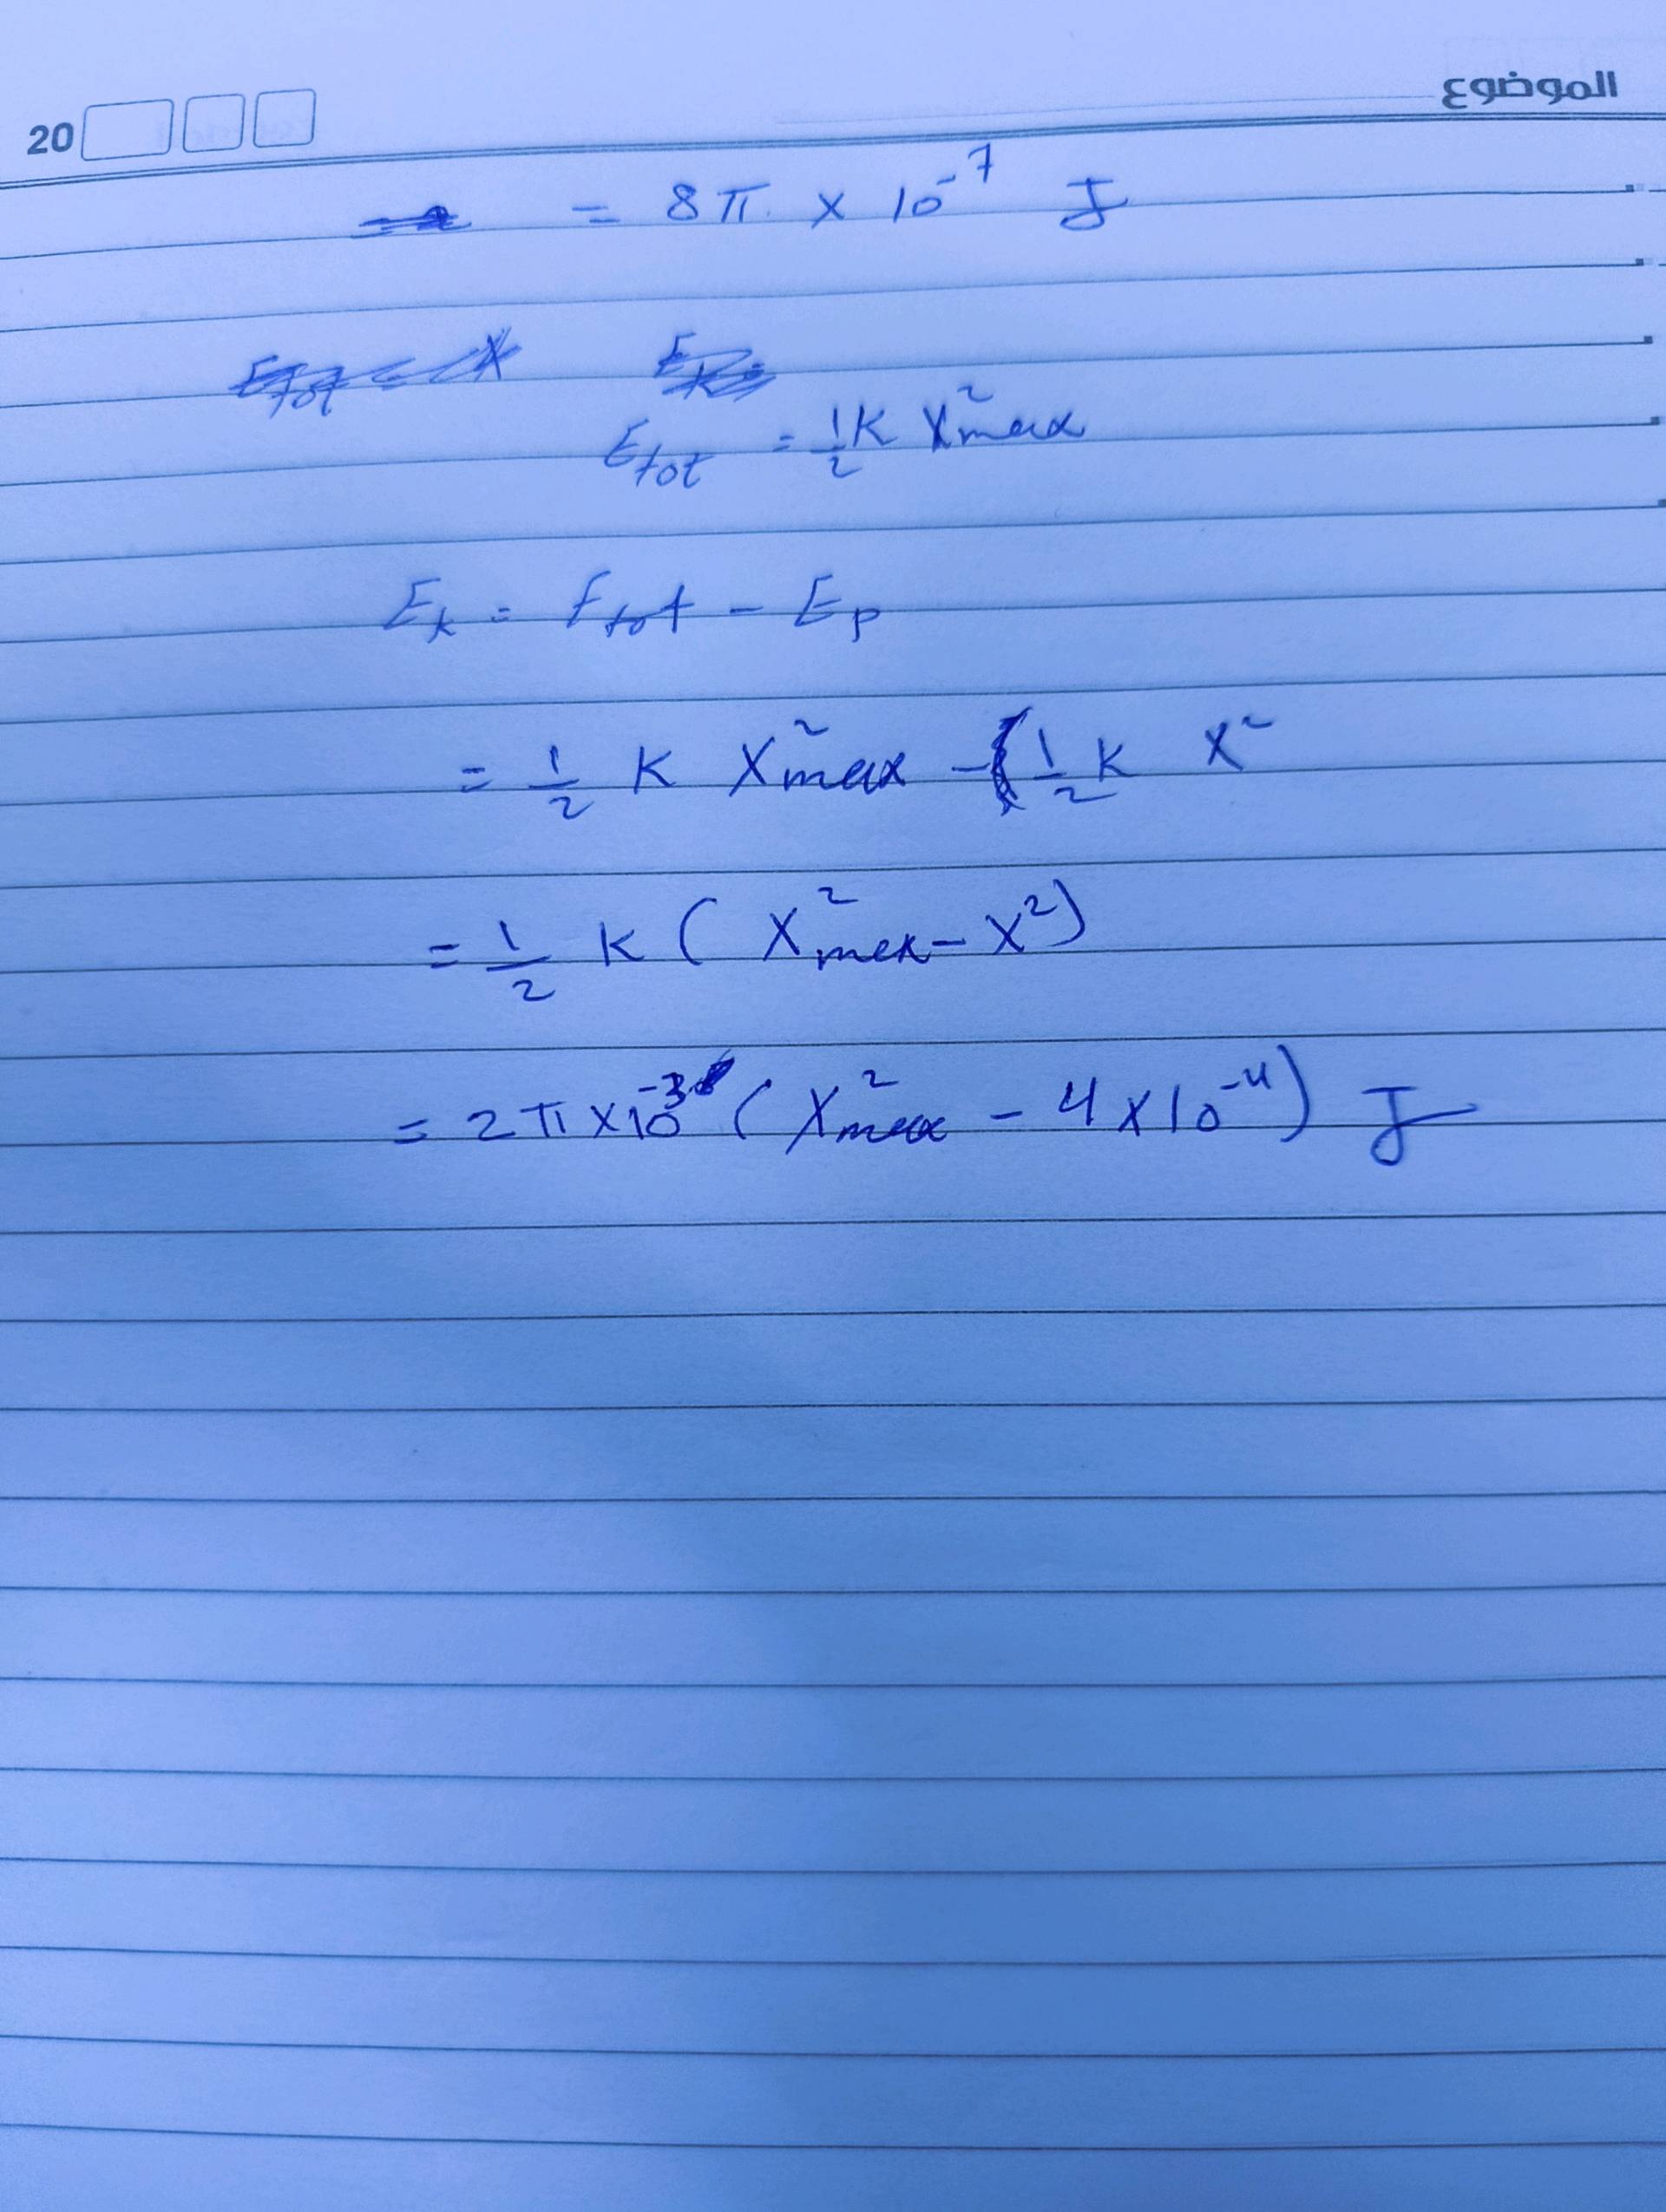 الموضوع
20
= 8π × 10⁻⁷ J
E_tot = ½ K X²max
E_k = E_tot - E_p
= ½ K X²max - ½ K X²
= ½ K ( X²max - X²)
= 2π × 10⁻³ ( X²max - 4 × 10⁻⁴ ) J